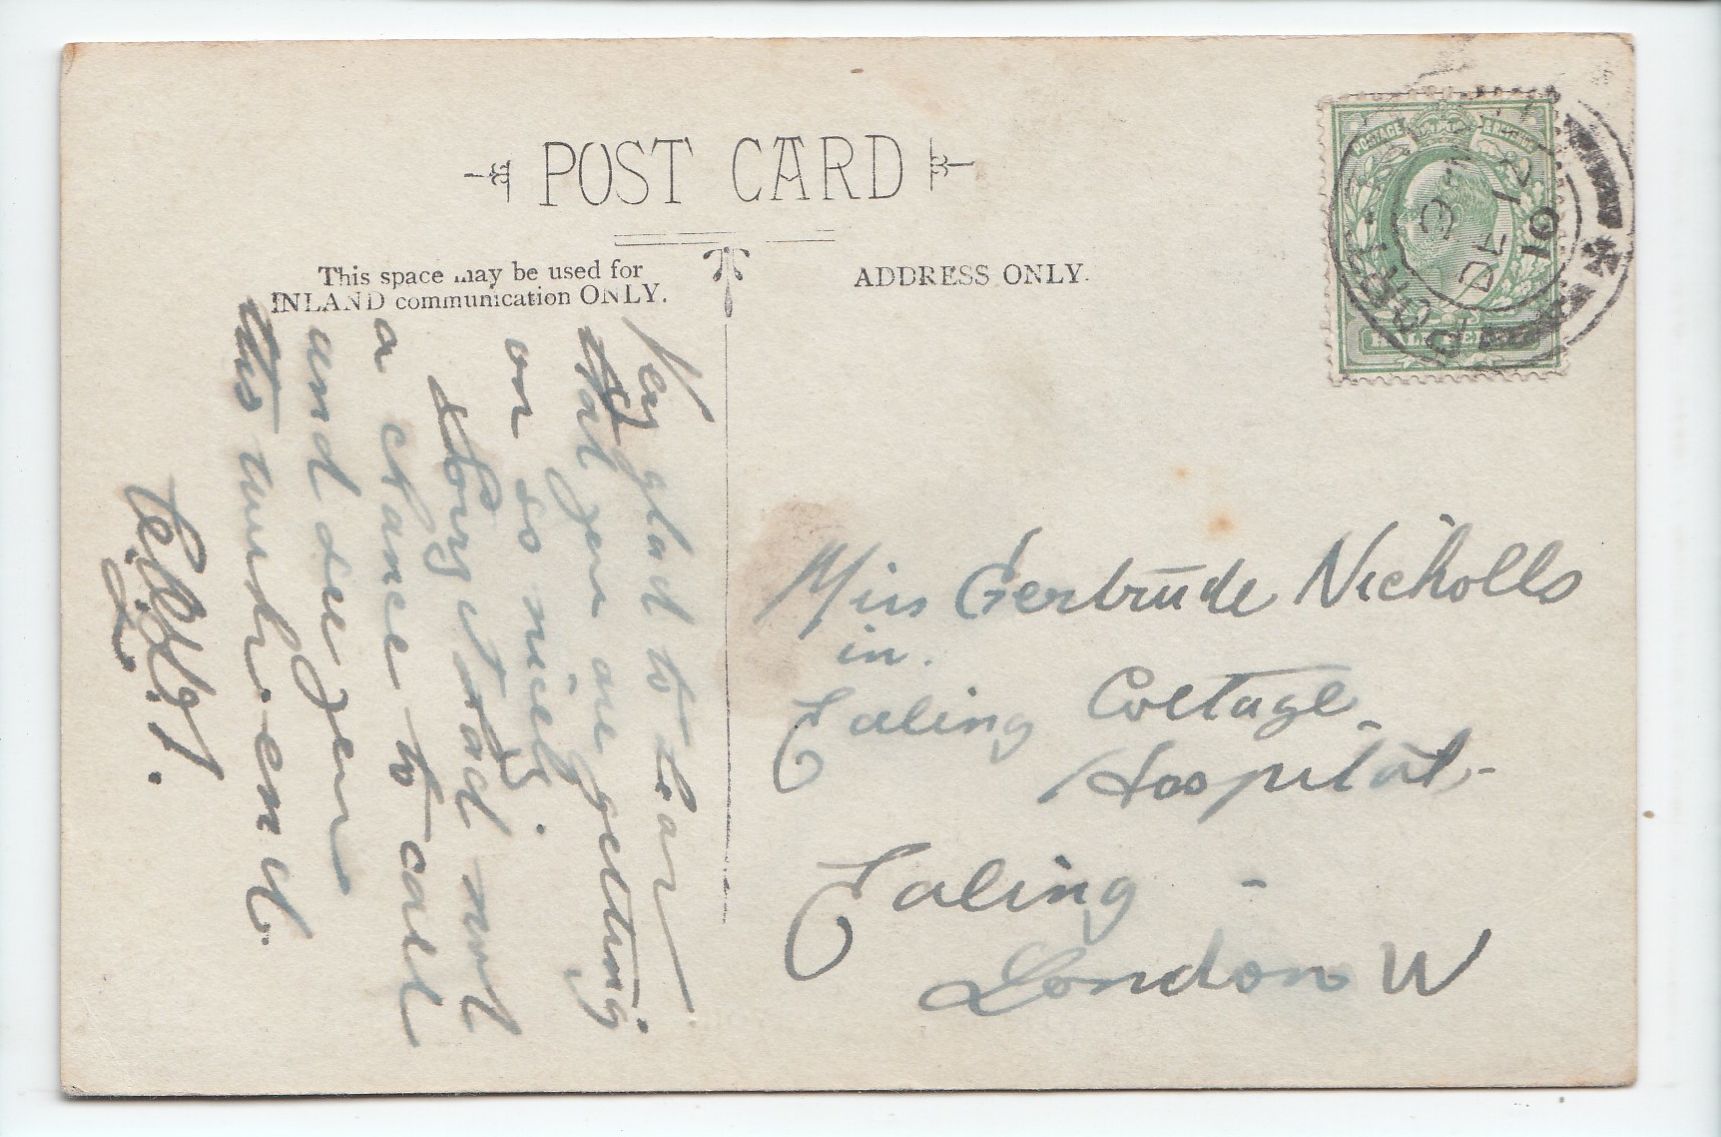 POST CARD
This space may be used for
INLAND communication ONLY.
ADDRESS ONLY.
POSTAGE
HALF
DE 12
10
Very glad to hear
that you are getting
on so nicely.
Sorry I had not
a chance to call
and see you
this week-end.
Miss Gertrude Nicholls
in.
Ealing Cottage
Hospital,-
Ealing -
London W